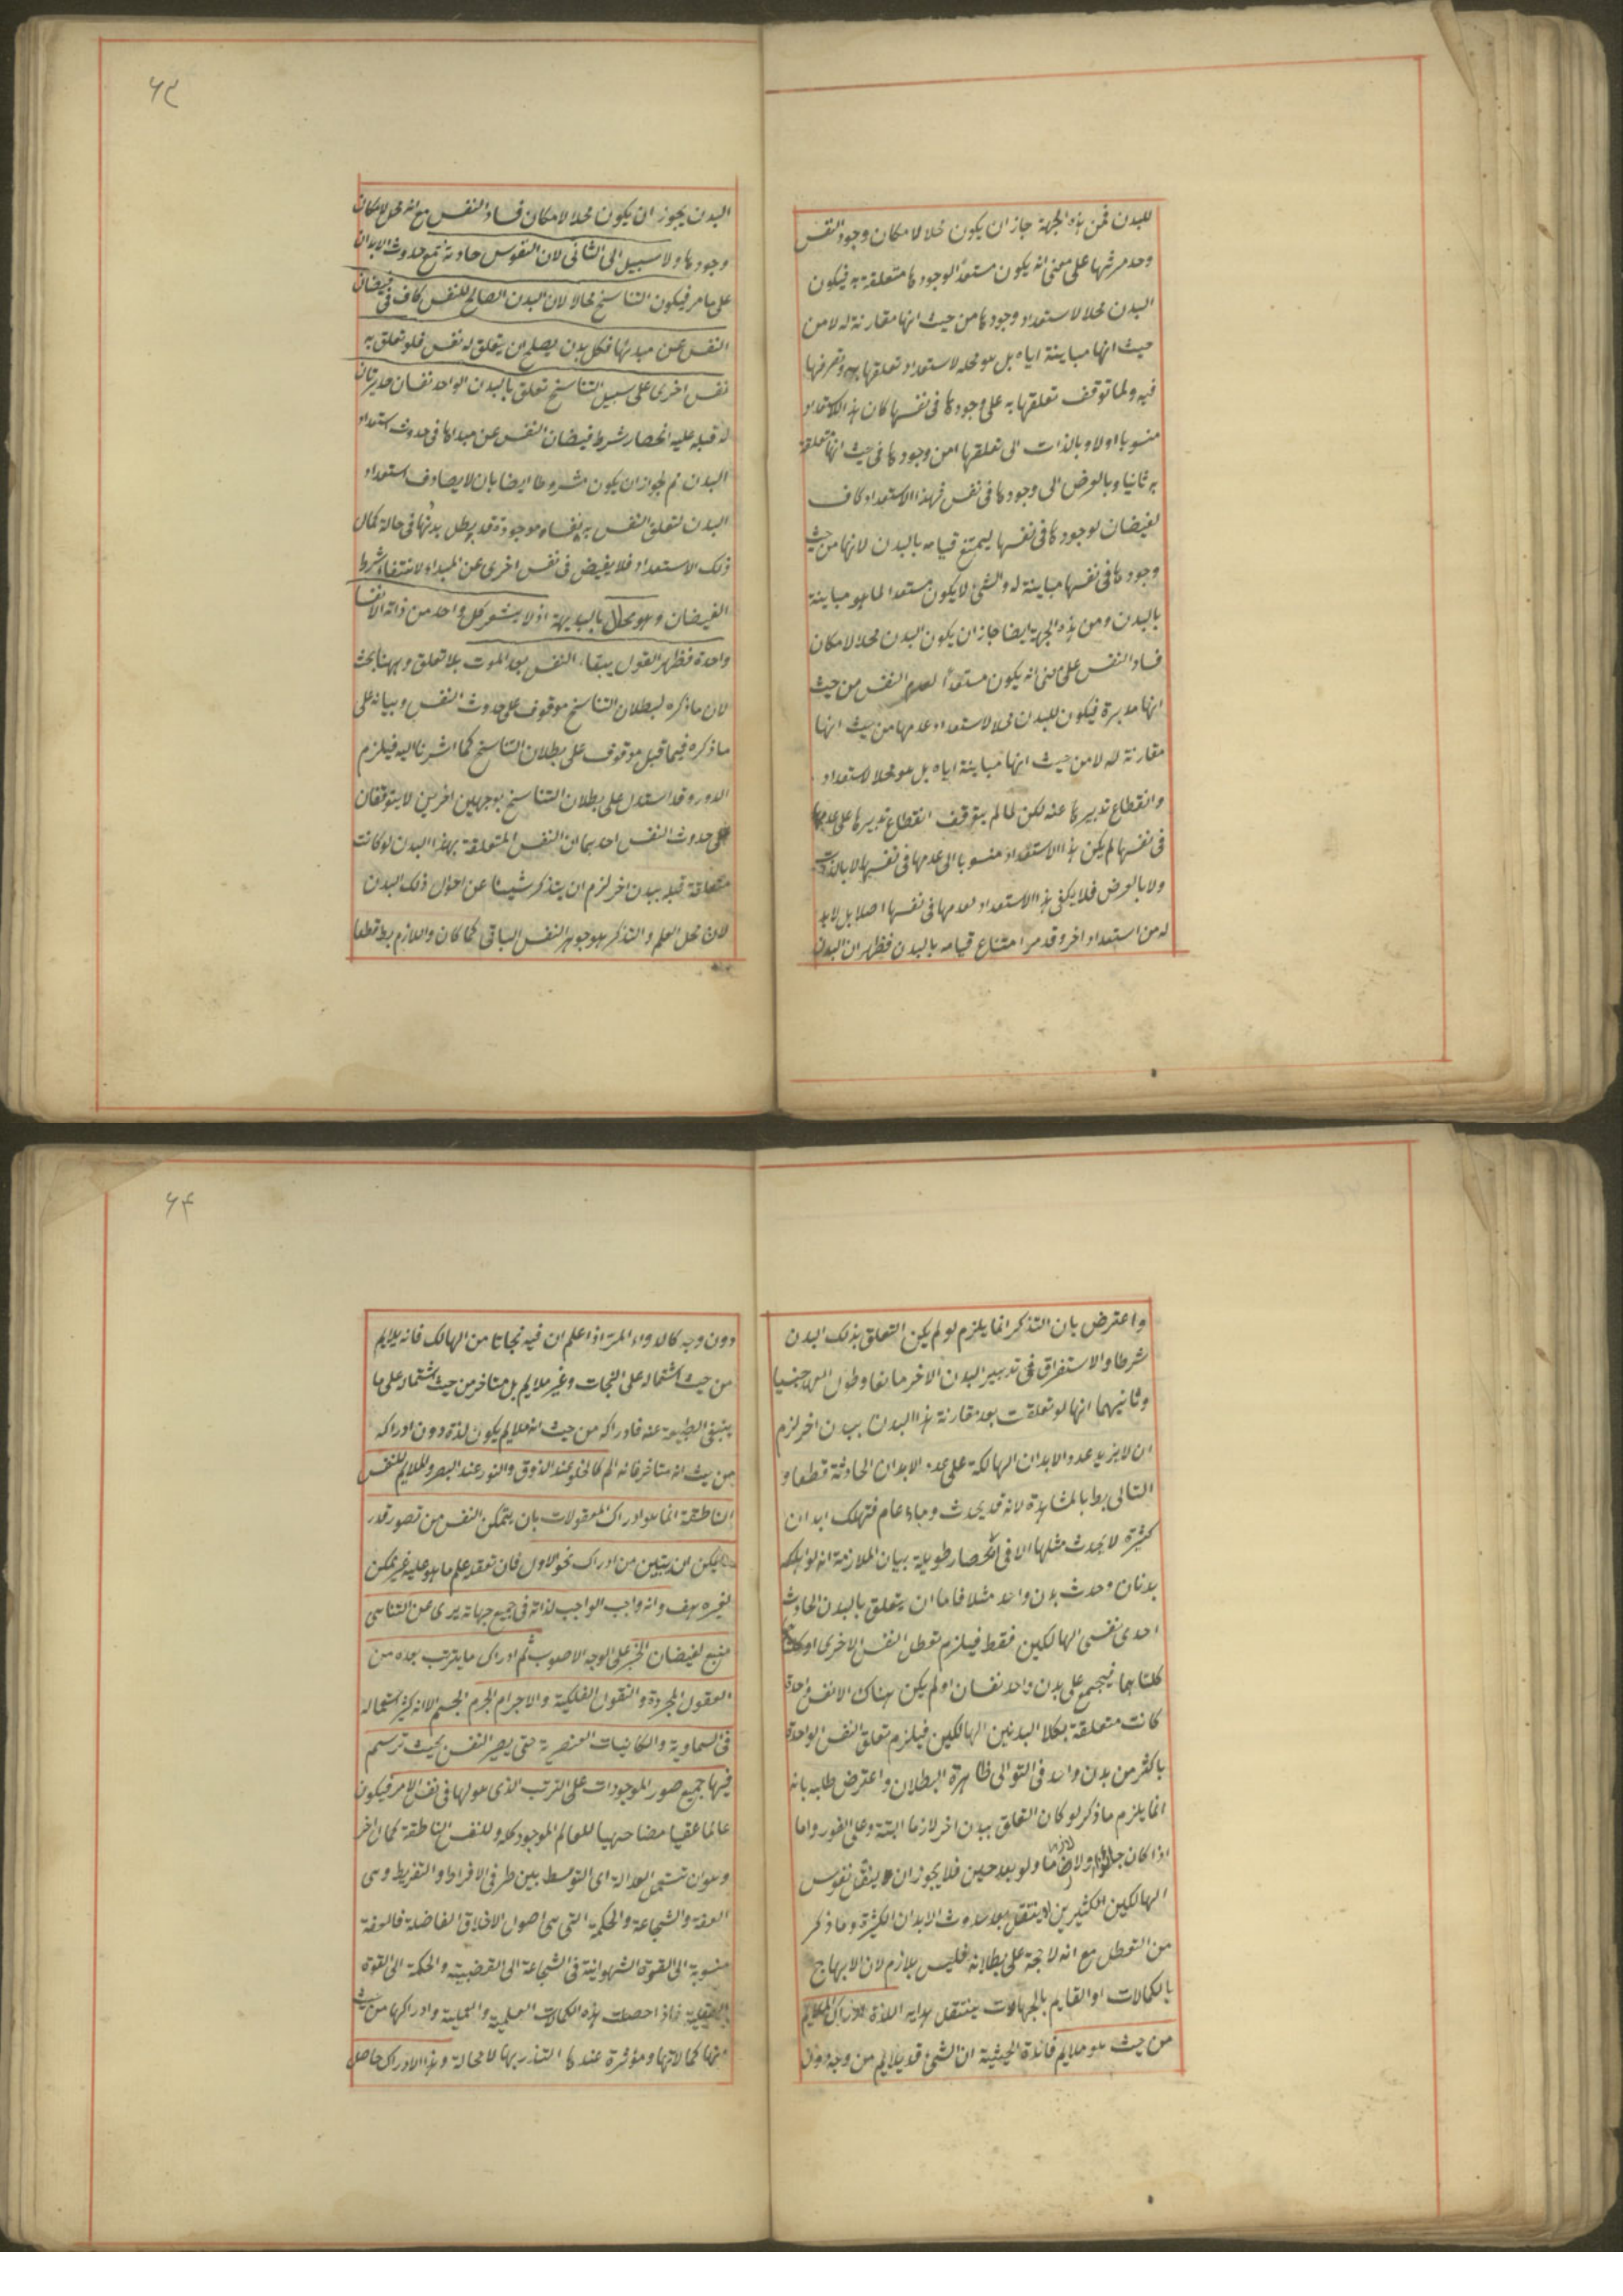 للبدن فمن هذه الجهة جاز ان يكون محلا لامكان وجود النفس
وحدوثها على معنى انه يكون مستعدا لوجودها متعلقة به فيكون
البدن محلا لاستعداد وجودها من حيث انها مقارنة له لا من
حيث انها مباينة اياه بل هو محله لاستعداد تعلقها به وتصرفها
فيه ولما توقف تعلقها به على وجودها فى نفسها كان هذا الاستعداد
منسوبا اولا وبالذات الى تعلقها من وجودها فى حيث انها متعلقة
به ثانيا وبالعرض الى وجودها فى نفس فهذا الاستعداد كاف
لفيضان لوجودها فى نفسها ليمتنع قيامه بالبدن لانها من حيث
وجودها فى نفسها مباينة له والشئ لا يكون مستعدا لما هو مباينة
بالبدن ومن هذه الجهة ايضا جاز ان يكون البدن محلا لامكان
فساد النفس على معنى انه يكون مستعدا لعدم النفس من حيث
انها مدبرة فيكون للبدن محلا لاستعداد عدمها من حيث انها
مقارنة له لا من حيث انها مباينة اياه بل هو محلا لاستعداد
وانقطاع تدبيرها عنه لكن لما لم يتوقف انقطاع تدبيرها على عدمها
فى نفسها لم يكن هذا الاستعداد منسوبا الى عدمها فى نفسها لا بالذات
ولا بالعرض فلا يكفى هذا الاستعداد لعدمها فى نفسها اصلا بل لا بد
له من استعداد اخر وقد مر امتناع قيامه بالبدن فظهر ان البدن
۶۳
البدن يجوز ان يكون محلا لامكان فساد النفس مع انه محل لامكان
وجودها ولا سبيل الى الثانى لان النفوس حادثة مع حدوث الابدان
على ما مر فيكون التناسخ محالا لان البدن الصالح للنفس كاف فى فيضان
النفس عن مبدئها فكل بدن يصلح ان يتعلق له نفس فلو تعلق به
نفس اخرى على سبيل التناسخ تعلق بالبدن الواحد نفسان مدبرتان
له قبله عليه انحصار شرط فيضان النفس عن مبداها فى حدوث استعداد
البدن ثم لجواز ان يكون مشروطا ايضا بان لا يصادف استعداد
البدن لتعلق النفس به نفسا موجودة قد بطل بدنها فى حالة كمال
ذلك الاستعداد فلا يفيض فى نفس اخرى عن المبداء لانتفاء شرط
الفيضان وهو محال بالبديهة اذ لا يشعر كل واحد من ذاته الا نفسا
واحدة فظهر القول ببقاء النفس بعد الموت بلا تعلق وههنا بحث
لان ما ذكره لبطلان التناسخ موقوف على حدوث النفس وبيانه على
ما ذكره فيما قبل موقوف على بطلان التناسخ كما اشرنا اليه فيلزم
الدور وقد استدل على بطلان التناسخ بوجهين اخرين لا يتوقفان
على حدوث النفس احدهما ان النفس المتعلقة بهذا البدن لو كانت
متعلقة قبله ببدن اخر لزم ان يتذكر شيئا عن احوال ذلك البدن
لان محل العلم والتذكر هو جوهر النفس الباقى كما كان واللازم بط قطعا
واعترض بان التذكر انما يلزم لو لم يكن التعلق بذلك البدن
شرطا والاستغراق فى تدبير البدن الاخر مانعا وطول
وثانيهما انها لو تعلقت بعد مقارنة هذا البدن ببدن اخر لزم
ان لا يزيد عدد الابدان الهالكة على عدد الابدان الحادثة قطعا و
التالى بط بالمشاهدة لانه قد يحدث وباء عام فتهلك ابدان
كثيرة لا يحدث مثلها الا فى اعصار طويلة بيان الملازمة انه لو هلك
بدنان وحدث بدن واحد مثلا فاما ان يتعلق بالبدن الحادث
احدى نفسى الهالكين فقط فيلزم تعطل النفس الاخرى او
كلتاهما فيجتمع على بدن واحد نفسان او لم يكن هناك الا نفس واحدة
كانت متعلقة بكلا البدنين الهالكين فيلزم تعلق النفس الواحدة
باكثر من بدن واحد فى التوالى ظاهرة البطلان واعترض عليه بانه
انما يلزم ما ذكر لو كان التعلق ببدن اخر لازما البتة وعلى الفور واما
اذا كان جائزا او لازما ولو بعد حين فلا يجوز ان لا ينتقل نفوس
الهالكين الكثيرين او ينتقل بعد حدوث الابدان الكثيرة وما ذكر
من التعطل مع انه لا حجة على بطلانه فليس بلازم لان الابهاج
بالكمالات او التالم بالجهالات ينتقل هداية اللذة ادراك الملايم
من حيث هو ملايم فائدة الحيثية ان الشئ قد يلايم من وجه دون
۶۴
دون وجه كالدواء المر اذا علم ان فيه نجاتا من الهالك فانه يلايم
من حيث اشتماله على النجات وغير ملايم بل منافر من حيث اشتماله على ما
ينبغى الطبيعة عنه فادراكه من حيث انه ملايم يكون لذة دون ادراكه
من حيث انه منافر فانه الم كالحلو عند الذوق والنور عند البصر والملايم للنفس
الناطقة انما هو ادراك المعقولات بان يتمكن النفس من تصور قدر
يمكن ان يتبين من ادراك نحو الاول فان تعقد علم ما هو عليه غير ممكن
لغيره هف وانه واجب الواجب لذاته فى جميع جهاته برى عن التناسى
منبع لفيضان الخير على الوجه الاصوب ثم ادراك ما يترتب بعده من
العقول المجردة والنفوس الفلكية والاجرام الجرم الجسم الا انه كثر استعماله
فى السماوية والكائنات العنصرية حتى يصير النفس بحيث ترتسم
فيها جميع صور الموجودات على الترتب الذى هو لها فى نفس الامر فيكون
عالما عقليا مضاهيا للعالم الموجود كله وللنفس الناطقة كمال اخر
وهو ان تستعمل العدالة اى التوسط بين طرفى الافراط والتفريط وهى
العفة والشجاعة والحكمة التى هى اصول الاخلاق الفاضلة فالعفة
منسوبة الى القوة الشهوانية فى الشجاعة الى الغضبية والحكمة الى القوة
العقلية فاذا حصلت هذه الكمالات العلمية والعملية وادراكها من حيث
انها كمالاتها ومؤثرة عندها التذت بها لا محالة وهذا الادراك حاصل